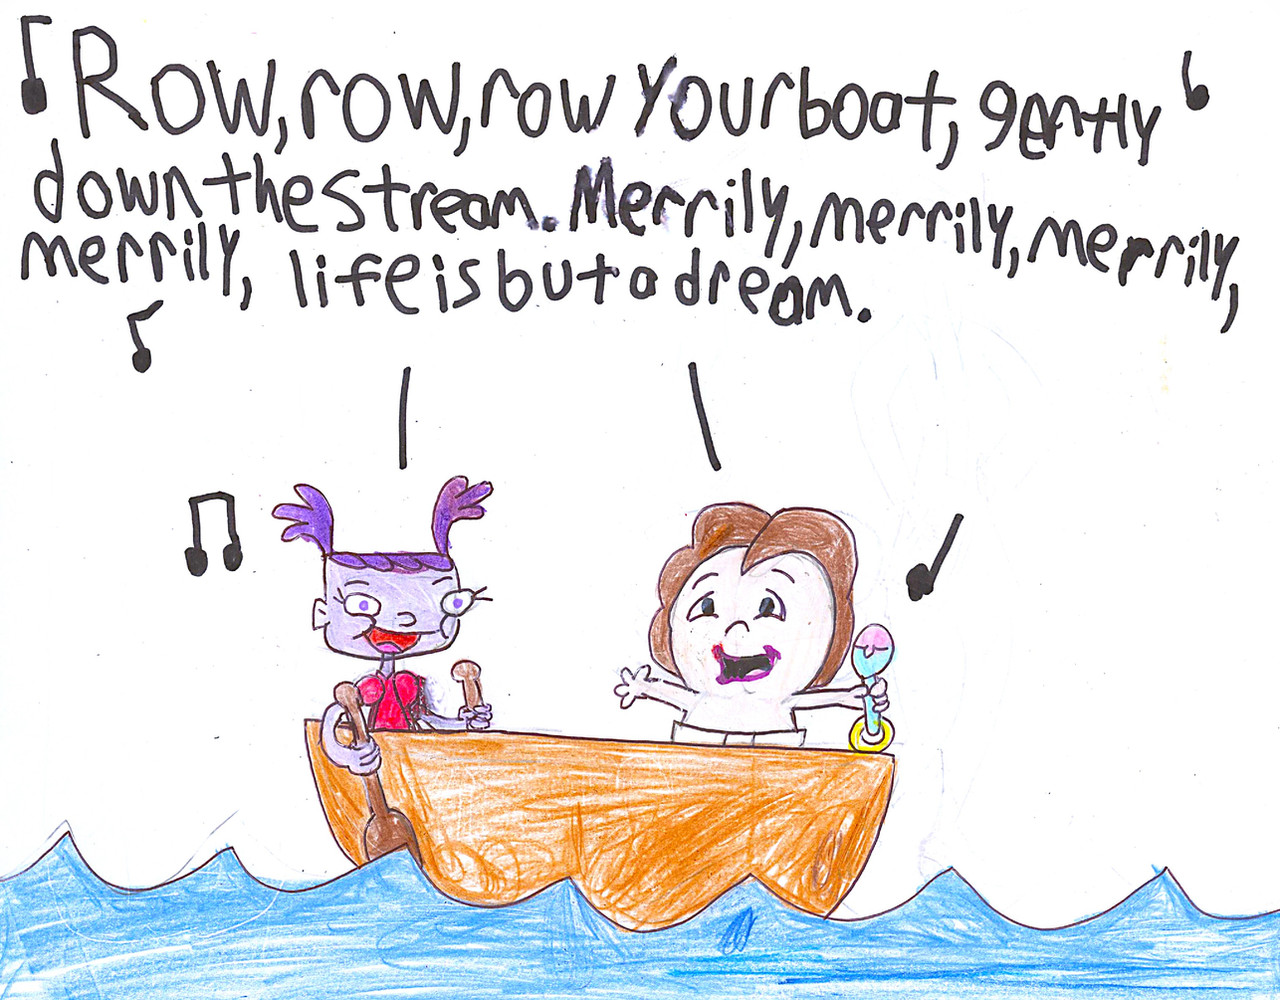 Row, row, row your boat, gently
down the stream. Merrily, merrily, merrily,
merrily, life is but a dream.